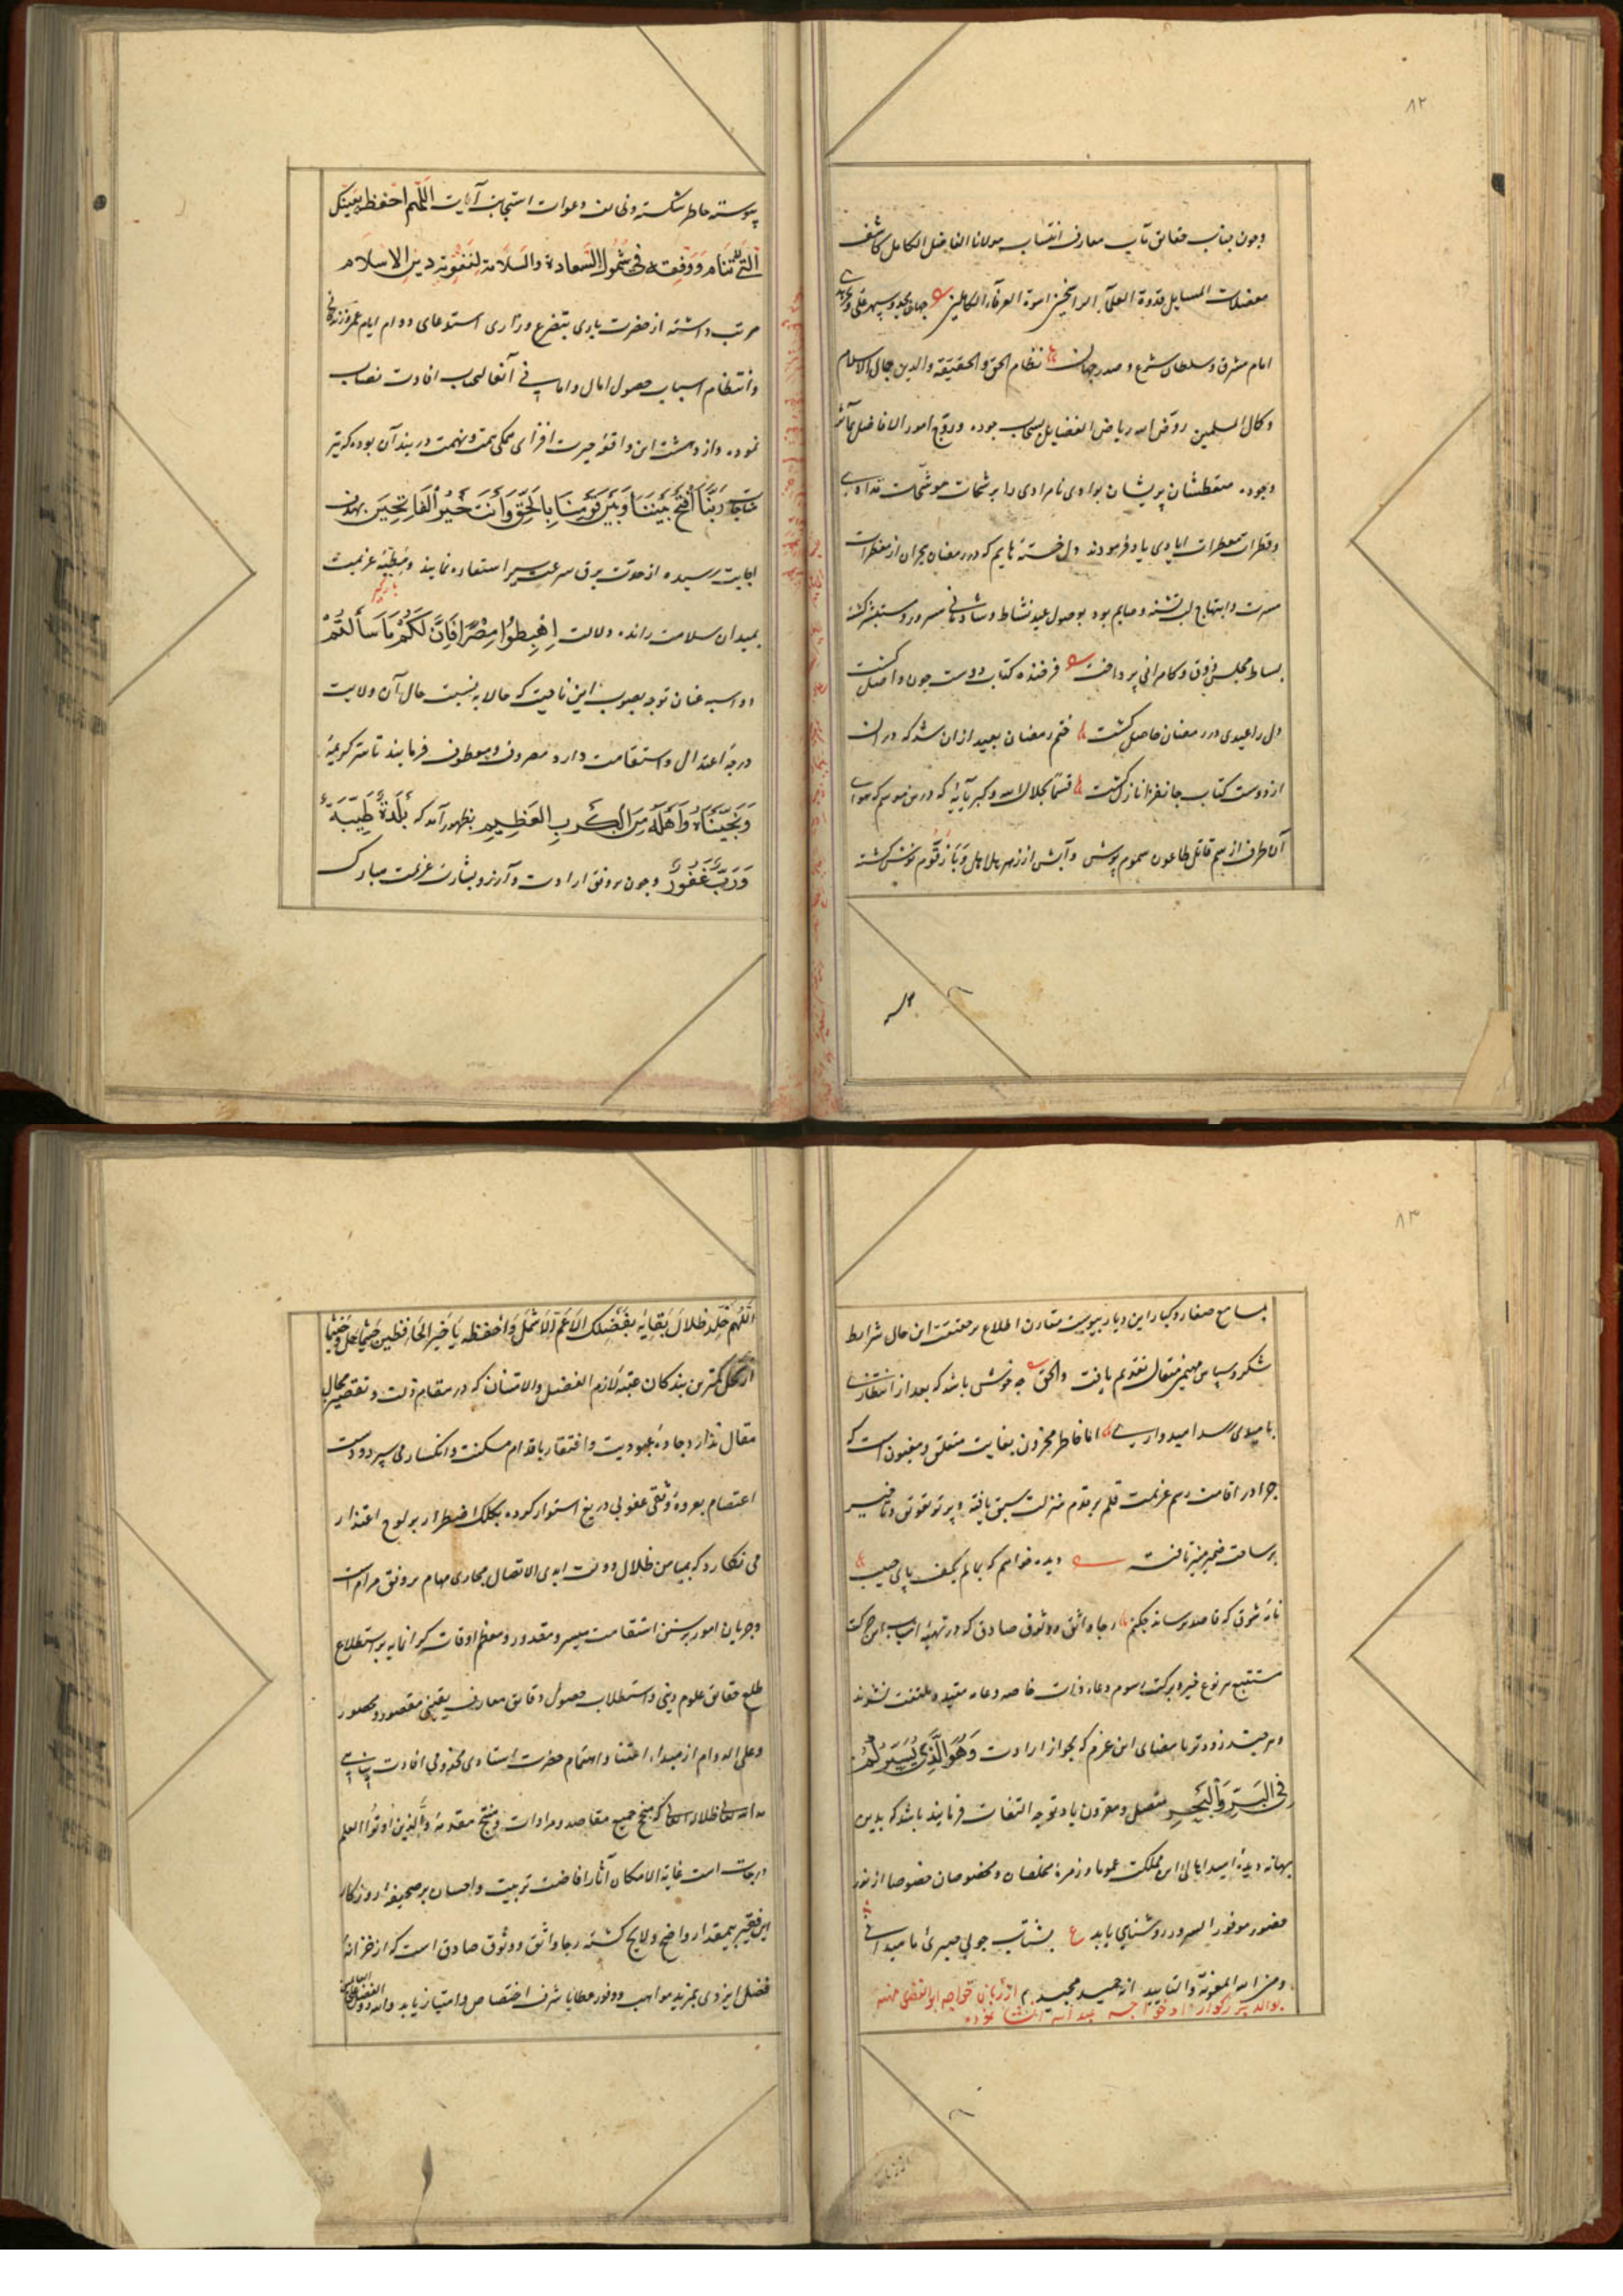 ۸۲
وچون جناب حقایق مآب معارف انتساب مولانا الفاضل الکامل کاشف
معضلات المسایل قدوة العلماء الراسخین اسوة العرفاء الکاملین جهان مجد و سپهر
امام مشرق و سلطان شرع و صدر جهان نظام الحق والحقیقة والدین جمال الاسلام
وکمال المسلمین روّض الله ریاض الفضایل بسحاب جوده و روّج امور الافاضل بمآثر
وجوده متعطشان پریشان بوادی نامرادی را برشحات موشحات
وقطرات معطرات ایادی یاد فرمودند دل خستهٔ هایم که در رمضان هجران از مفطرات
مسرت و ابتهاج لب تشنه و صایم بود بوصول عید نشاط و شادمانی مسرور و مستبشر کشته
بساط مجلس ذوق و کامرانی پرداخت فرخنده کتاب دوست چون واصل کشت
دل را عیدی در رمضان حاصل کشت ختم رمضان بعید از ان شد که در ان
از دوست کتاب جانفزا نازل کشت قسما بجلال الله وکبریائه که درین موسم که هوای
آن طرف از سم قاتل طاعون سموم پوش و آبش از زهر هلاهل و بازقوم نوش کشته
پیوسته خاطر شکسته وظایف دعوات استجابت آیات اللهم احفظ بعینک
التی لاتنام ووفقه فی شمول السعادة والسلامة لتقویة دین الاسلام
مرتب داشته از حضرت باری بتضرع و زاری استدعای دوام ایام عمر و زندکانی
وانتظام اسباب حصول امال و امانی آنعالیجناب افادت نصاب
نموده و از دهشت این واقعه حیرت افزای همکی همت و نهمت در بند آن بوده که تیر
مناجات ربنا افتح بیننا وبین قومنا بالحق وانت خیر الفاتحین بهدف
اجابت رسیده از دعوت برق سرعت سیر استعاره نمایند و مطیهٔ عزیمت
بمیدان سلامت رانده دلالت اهبطوا مصرا فان لکم ما سألتم
دو اسبه عنان توجه بصوب این ناحیت که حالا به نسبت حال آن ولایت
درجهٔ اعتدال و استقامت دارد مصروف و معطوف فرمایند تا سر کریمهٔ
ونجیناه واهله من الکرب العظیم بظهور آمد که بلدة طیبة
ورب غفور وچون بر وفق ارادت و آرزو بشارت عزیمت مبارک
۸۳
بمسامع صغار و کبار این دیار پیوست مقارن اطلاع بر حقیقت این حال شرایط
شکر و سپاس مهیمن متعال تقدیم یافت والحق چه خوش باشد که بعد از انتظاری
بامیدی رسد امیدواری اما خاطر محزون بغایت متعلق و مغبون است که
چرا در اقامت رسم عزیمت قلم بر قدم منزلت سبق یافته و پرتو تعویق و تاخیر
بر ساحت ضمیر منیر تافت دیده خواهم که بمالم بکف پای حبیب
نامهٔ شوق که قاصد برساند چکنم رجا واثق و وثوق صادق که در تهیهٔ اسباب این حرکت
مستتبع هر نوع خیر و برکت برسوم و عادات خاصه و عامه مقید و ملتفت نشوند
وهر چند زودتر بامضای این عزم که بجواز ارادت وهو الذی یسیرکم
فی البر والبحر متصل و مقرون باد توجه التفات فرمایند باشد که بدین
بهانه دیدهٔ امید اهالی این مملکت عموما و زمرهٔ مخلصان و مخصوصان خصوصا از نور
حضور موفور السرور روشنایی یابد ع بشتاب چو بی صبری ما میدانی
ومن الله المعونة والتایید انه حمید مجید از زبان خواجه ابوالفضل
بوالد بزرکوار او خواجه عبدالله انشا نموده
اللهم خلد ظلال بقایه بفضلک الاعم الاشمل واحفظه یا خیر الحافظین حیثما حل وحیثما
ارتحل کمترین بندکان عتبهٔ لازم الفضل والامتنان که در مقام ذلت و تقصیر مجال
مقال ندارد و جادهٔ عبودیت و افتقار باقدام مسکنت و انکسار می سپرد و دست
اعتصام بعروهٔ وثقی عفو بی دریغ استوار کرده بکلک اضطرار بر لوح اعتذار
می نکارد که بمیامن ظلال دولت ابدی الاتصال مجاری مهام بر وفق مرام است
وجریان امور بر سنن استقامت میسر و مقدور و معظم اوقات کرانمایه بر استطلاع
طلع حقایق علوم دینی و استطلاب حصول دقایق معارف یقینی مقصور و محصور
وعلی الدوام از میداء اعتنا و اهتمام حضرت استادی مخدومی افادت پناهی
مد الله تعالی ظلاله العالی که منهج جمیع مقاصد و مرادات و منتج مقدمهٔ والذین اوتوا العلم
درجات است غایة الامکان آثار افاضت تربیت و احسان بر صحیفهٔ روزکار
این فقیر بیمقدار واضح و لایح کشته رجا واثق و وثوق صادق است که از خزانهٔ
فضل ایزدی بمزید مواهب و وفور عطایا شرف اختصاص و امتیاز یابد والله ذو الفضل